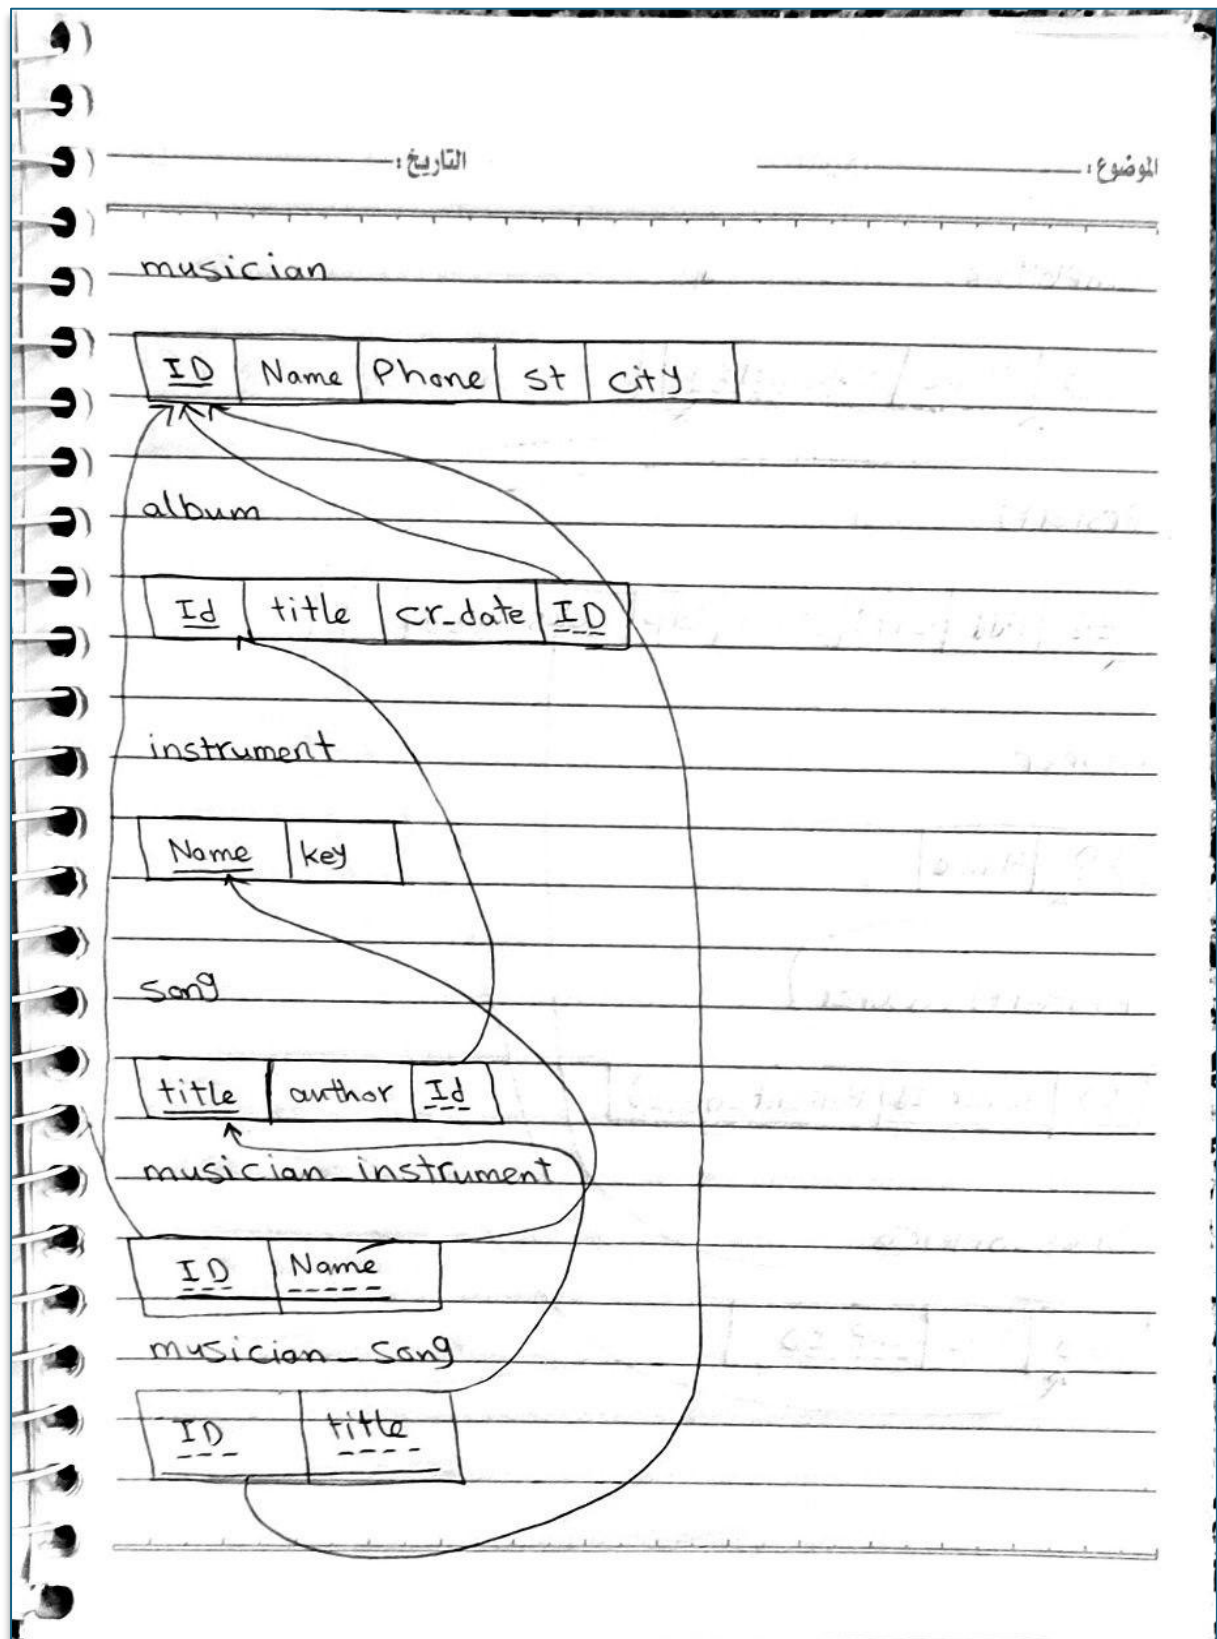 الموضوع: التاريخ:
musician
ID Name Phone St city
album
Id title cr_date ID
instrument
Name key
song
title author Id
musician_instrument
ID Name
musician_song
ID title